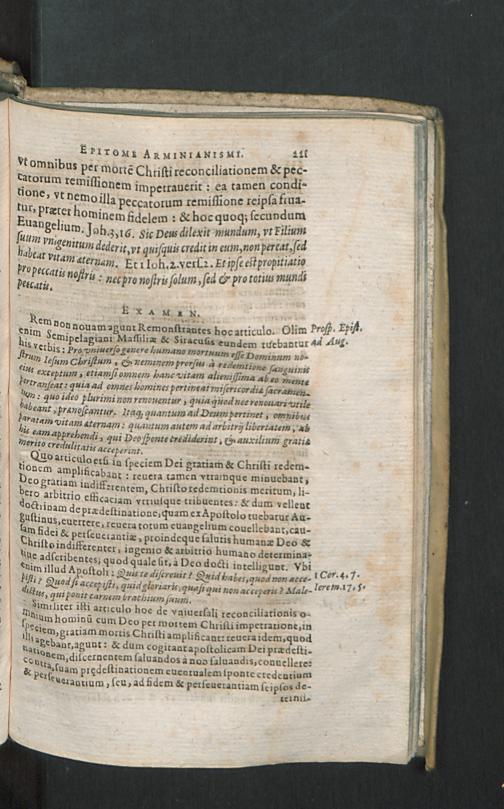 EPITOME ARMINIANISMI. 221
vt omnibus per mortē Christi reconciliationem & pec-
catorum remissionem impetrauerit : ea tamen condi-
tione, vt nemo illa peccatorum remissione reipsa frua-
tur, præter hominem fidelem : & hoc quoq; secundum
Euangelium. Joh.3,16. Sic Deus dilexit mundum, vt Filium
suum vnigenitum dederit, vt quisquis credit in eum, non pereat, sed
habeat vitam æternam. Et 1 Ioh.2. vers.2. Et ipse est propitiatio
pro peccatis nostris : nec pro nostris solum, sed & pro totius mundi
peccatis.
EXAMEN.
Rem non nouam agunt Remonstrantes hoc articulo. Olim Prosp. Epist.
enim Semipelagiani Massiliæ & Siracusis eundem tuebantur ad Aug.
his verbis : Pro vniuerso genere humano mortuum esse Dominum no-
strum Iesum Christum, & neminem prorsus à redemtione sanguinis
eius exceptum, etiamsi omnem hanc vitam alienissima ab eo mente
pertranseat : quia ad omnes homines pertineat misericordiæ sacramen-
tum : quo ideo plurimi non renouentur, quia quod nec renouari velle
habeant, prænoscantur. Itaq, quantum ad Deum pertinet, omnibus
paratam vitam æternam : quantum autem ad arbitrij libertatem, ab
his eam apprehendi, qui Deo sponte crediderint, & auxilium gratiæ
merito credulitatis acceperint.
Quo articulo etsi in speciem Dei gratiam & Christi redem-
tionem amplificabant : reuera tamen vtramque minuebant,
Deo gratiam indifferentem, Christo redemtionis meritum, li-
bero arbitrio efficaciam vtriusque tribuentes : & dum vellent
doctrinam de prædestinatione, quam ex Apostolo tuebatur Au-
gustinus, euertere, reuera totum euangelium couellebant, cau-
sam fidei & perseuerantiæ, proindeque salutis humanæ Deo &
Christo indifferenter, ingenio & arbitrio humano determina-
tiue adscribentes, quod quale sit, à Deo docti intelligunt. Vbi
enim illud Apostoli : Quis te discreuit ? Quid habes, quod non acce- 1 Cor. 4, 7.
pisti ? Quod si accepisti, quid gloriaris, quasi qui non acceperis ? Male- Ierem. 17. 5.
dictus, qui ponit carnem brachium suum.
Similiter isti articulo hoc de vniuersali reconciliationis o-
mnium hominū cum Deo per mortem Christi impetratione, in
speciem, gratiam mortis Christi amplificant: reuera idem, quod
illi agebant, agunt : & dum cogitant apostolicam Dei prædesti-
nationem, discernentem saluandos à non saluandis, conuellere:
contra, suam prędestinationem euentualem sponte credentium
& perseuerantium, seu, ad fidem & perseuerantiam seipsos de-
termi-